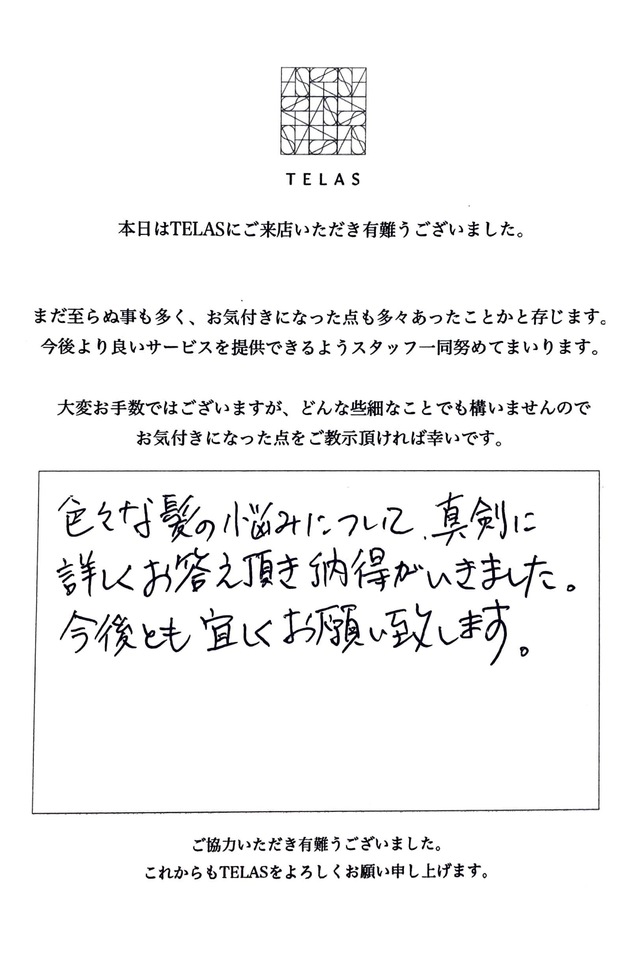 TELAS
本日はTELASにご来店いただき有難うございました。
まだ至らぬ事も多く、お気付きになった点も多々あったことかと存じます。
今後より良いサービスを提供できるようスタッフ一同努めてまいります。
大変お手数ではございますが、どんな些細なことでも構いませんので
お気付きになった点をご教示頂ければ幸いです。
色々な髪の悩みについて、真剣に
詳しくお答え頂き納得がいきました。
今後とも宜しくお願い致します。
ご協力いただき有難うございました。
これからもTELASをよろしくお願い申し上げます。